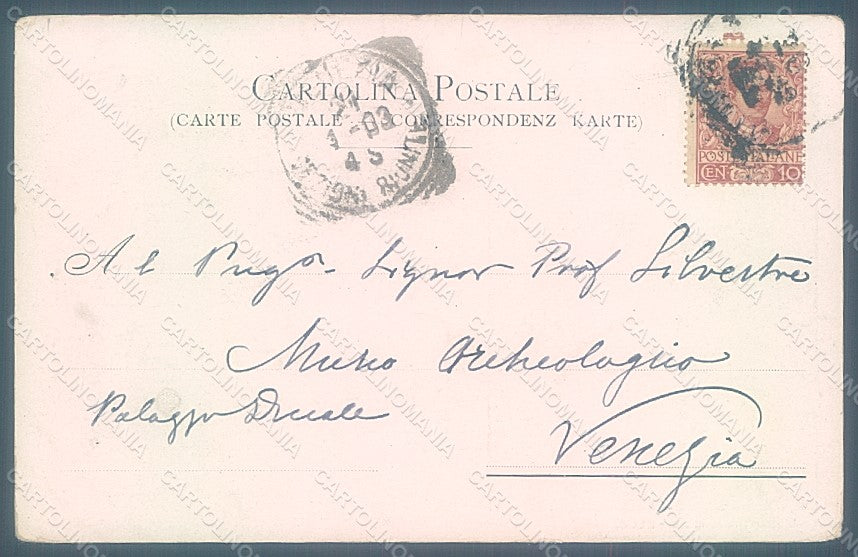 CARTOLINA POSTALE
(CARTE POSTALE - CORRESPONDENZ KARTE)
POSTE ITALIANE
CEN 10
RIUNIONI
1-03
4 S
Al Preg.o Signor Prof Silvestre
Museo Archeologico
Palazzo Ducale
Venezia
CARTOLINOMANIA